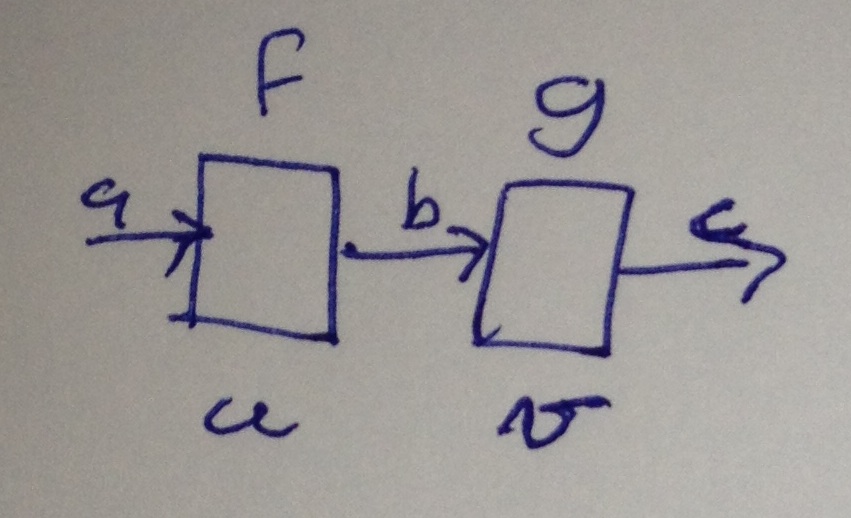 f g
a b c
u v